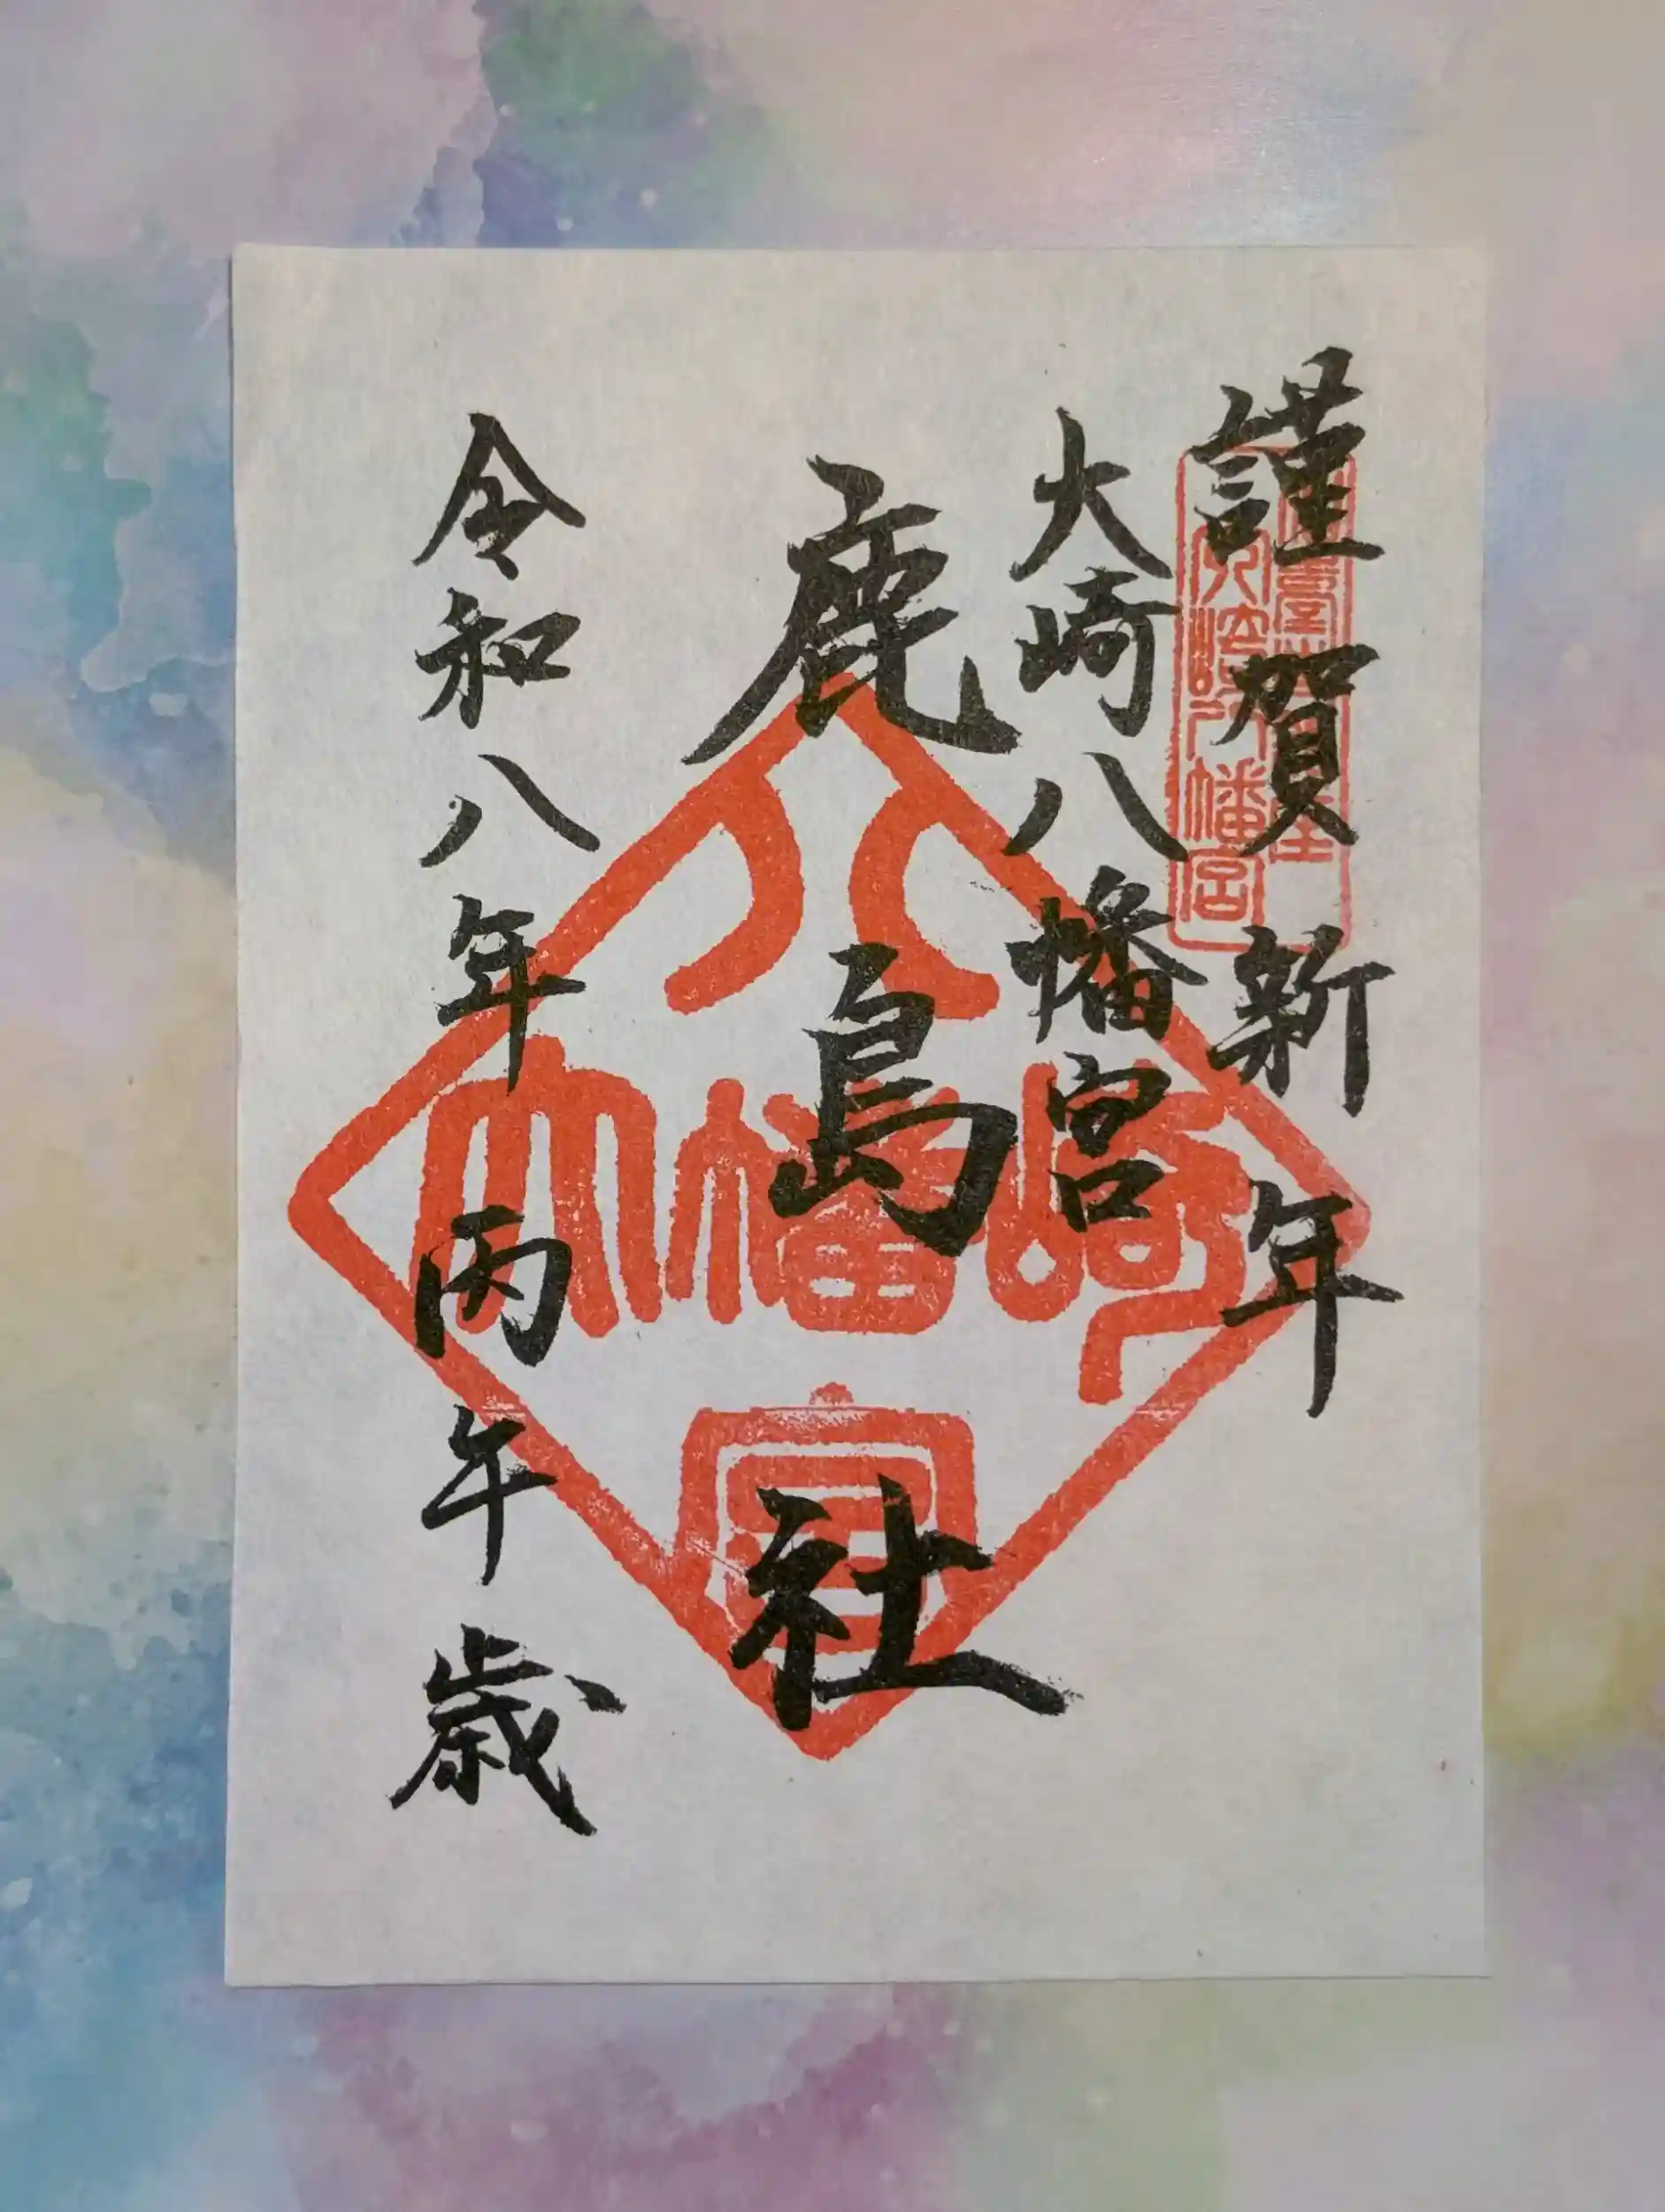 謹賀新年
大崎八幡宮
鹿島社
令和八年丙午歳
八
大幡崎
宮
大崎八幡宮